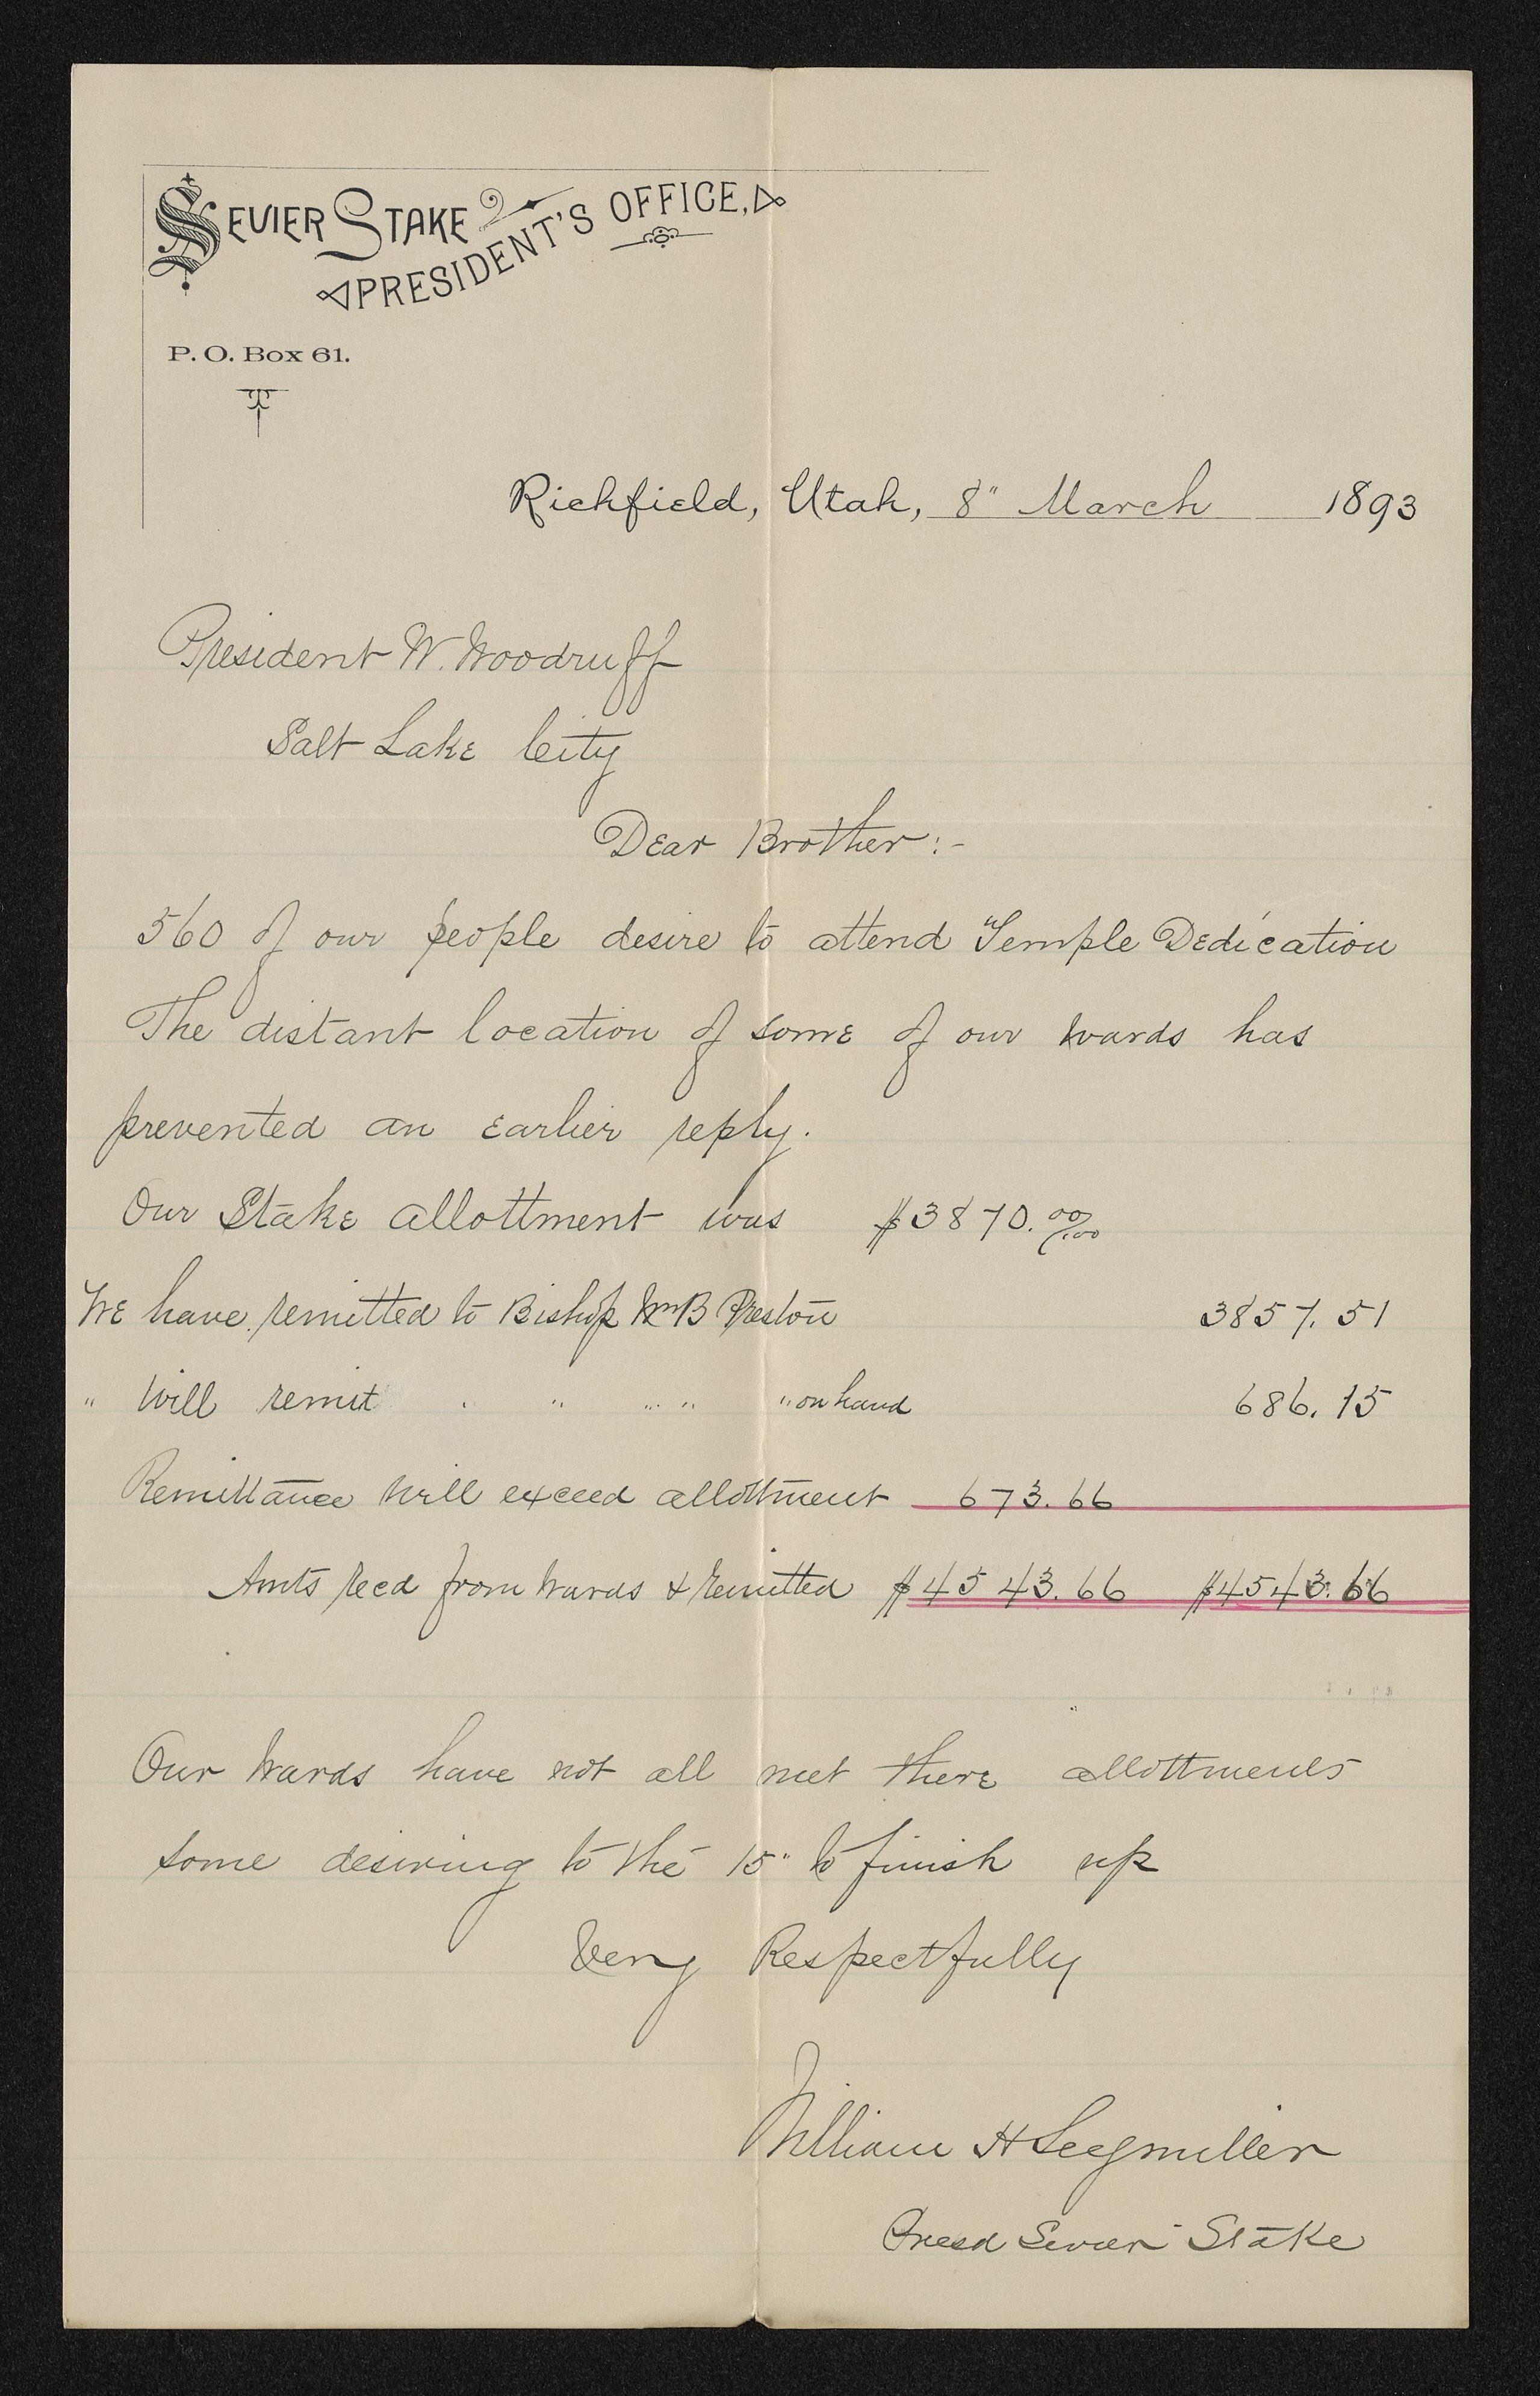 SEVIER STAKE
PRESIDENT'S OFFICE,
P. O. Box 61.
Richfield, Utah, 8" March 1893
President W. Woodruff
Salt Lake City
Dear Brother :-
560 of our people desire to attend Temple Dedication
The distant location of some of our wards has
prevented an earlier reply.
Our Stake allottment was $3870.00/00
We have remitted to Bishop Wm B Preston 3857.51
" Will remit " " " " " on hand 686.15
Remittance will exceed allottment 673.66
Amts recd from wards & remitted $4543.66 $4543.66
Our wards have not all met there allottments
some desiring to the 15" to finish up
Very Respectfully
William H Seegmiller
Presd Sevier Stake